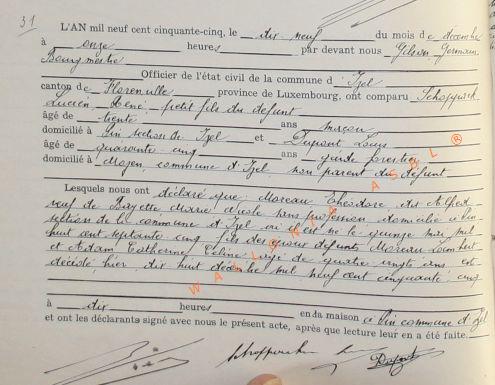 31
L'AN mil neuf cent cinquante-cinq, le dix neuf du mois de décembre
à onze heures par devant nous Gilson, Germain
Bourgmestre
Officier de l'état civil de la commune d'Izel
canton de Florenville province de Luxembourg, ont comparu
Lucien, René, petit fils du défunt
âgé de trente ans maçon
domicilié à section de Izel et Dupont Louis
âgé de quarante cinq ans garde forestier
domicilié à Moyen, commune d'Izel, non parent du défunt
Lesquels nous ont déclaré que Moreau Théodore dit Alfred
veuf de Bayette Marie, sans profession domicilié à
section de la commune d'Izel où il est né le quinze mai mil
huit cent septante cinq fils des époux défunts Moreau Lambert
et Adam Catherine Céline, âgé de quatre vingts ans est
décédé hier dix huit décembre mil neuf cent cinquante cinq
à dix heures en da maison commune d'Izel
et ont les déclarants signé avec nous le présent acte, après que lecture leur en a été faite.
Dupont
WALLONIE ASBL ®